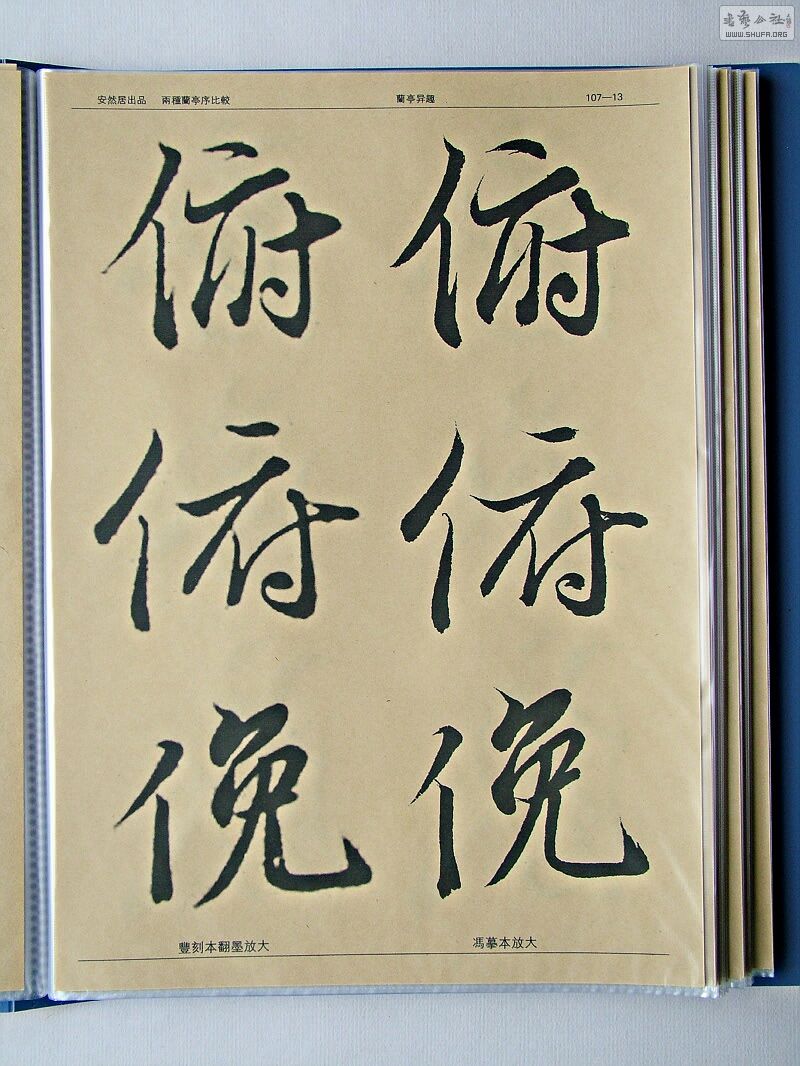 書藝公社
WWW.SHUFA.ORG
安然居出品 兩種蘭亭序比較 蘭亭异趣 107—13
俯 俯
俯 俯
俛 俛
豐刻本翻墨放大 馮摹本放大